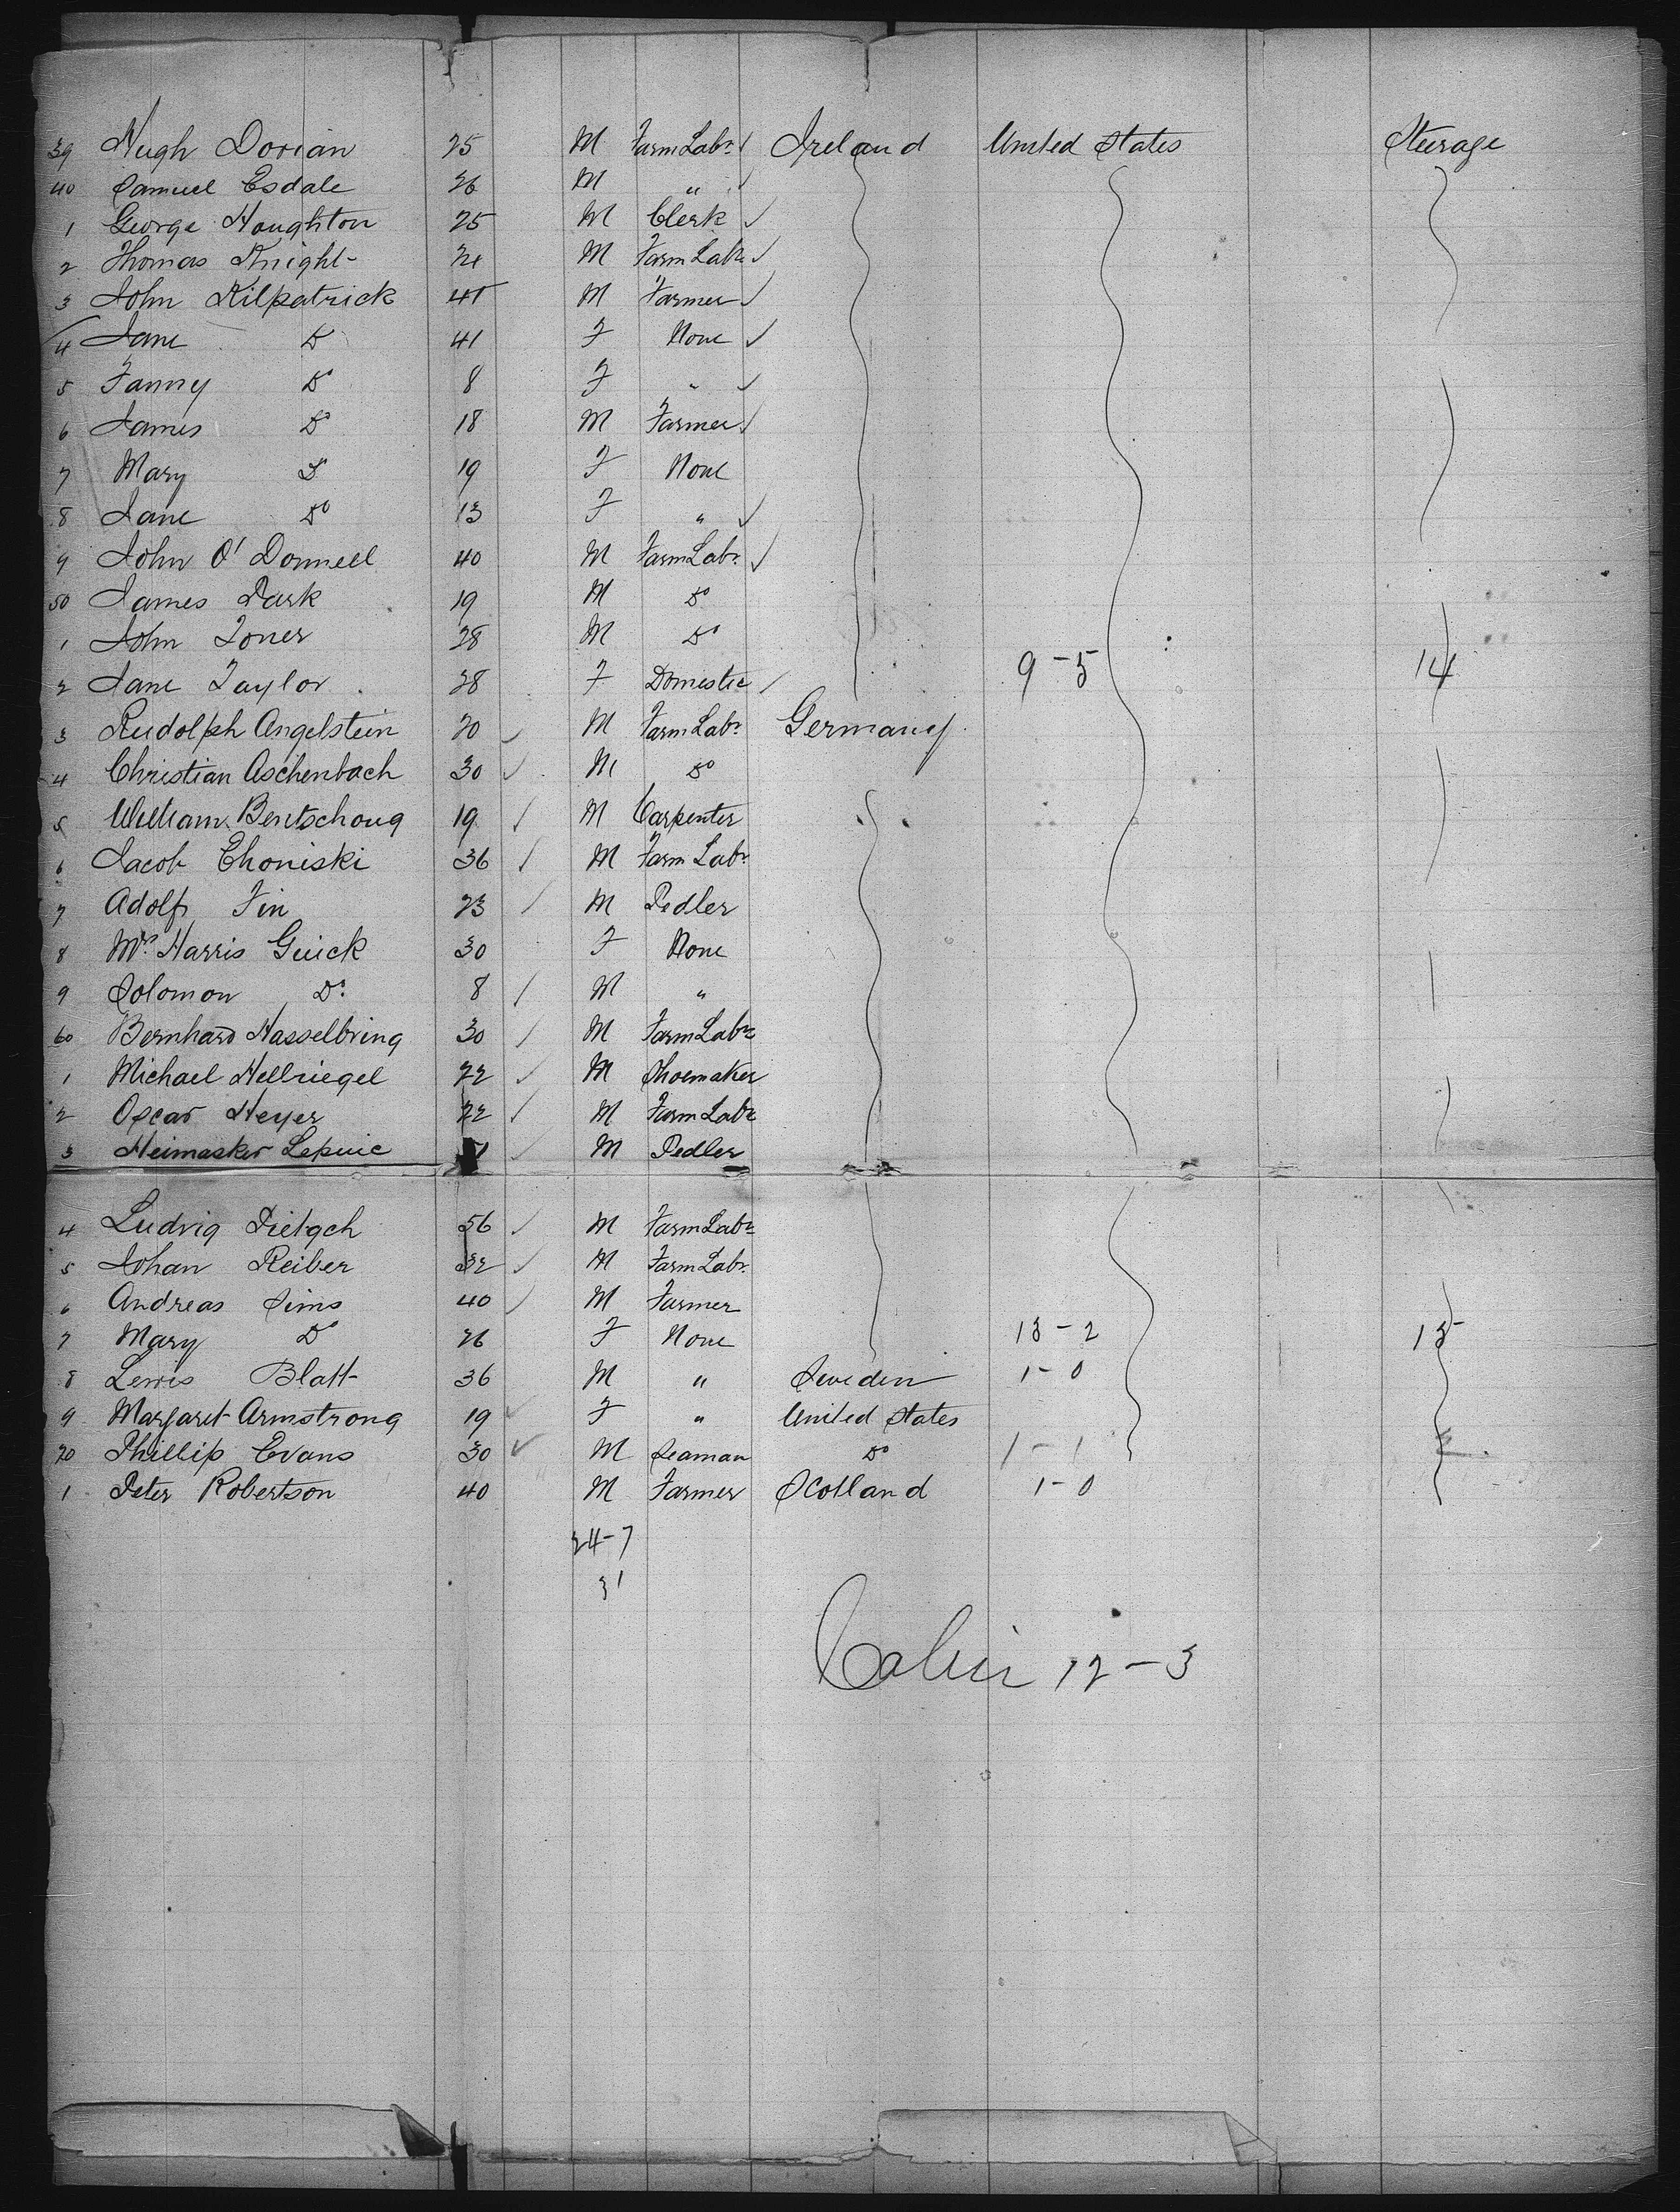 39 Hugh Dorian 25 M Farm Labr Ireland United States Steerage
40 Samuel Esdale 26 M "
1 George Houghton 25 M Clerk
2 Thomas Knight M Farm Labr
3 John Kilpatrick 45 M Farmer
4 Jane Do 41 F None
5 Fanny Do 8 F "
6 James Do 18 M Farmer
7 Mary Do 19 F None
8 Jane Do 13 F "
9 John O'Donnell 40 M Farm Labr
50 James Park 19 M Do
1 John Toner 28 M Do
2 Jane Taylor 28 F Domestic 9-5 14
3 Rudolph Angelstein 20 M Farm Labr Germany
4 Christian Aschenbach 30 M Do
5 William Bentschoug 19 M Carpenter
6 Jacob Choniski 36 M Farm Labr
7 Adolf Fin 23 M Pedler
8 Mrs Harris Guick 30 F None
9 Solomon Do 8 M "
60 Bernhard Hasselbring 30 M Farm Labr
1 Michael Hellriegel 22 M Shoemaker
2 Oscar Heyer 22 M Farm Labr
3 Heimasker M Pedler
4 Ludvig 56 M Farm Labr
5 Johan Reiber 32 M Farm Labr
6 Andreas Sims 40 M Farmer
7 Mary Do 26 F None 13-2 15
8 Lewis Blatt 36 M " Sweden 1-0
9 Margaret Armstrong 19 F " United States
70 Phillip Evans 30 M Seaman Do 1-1
1 Peter Robertson 40 M Farmer Scotland 1-0
24-7
31
Cabin 12-3